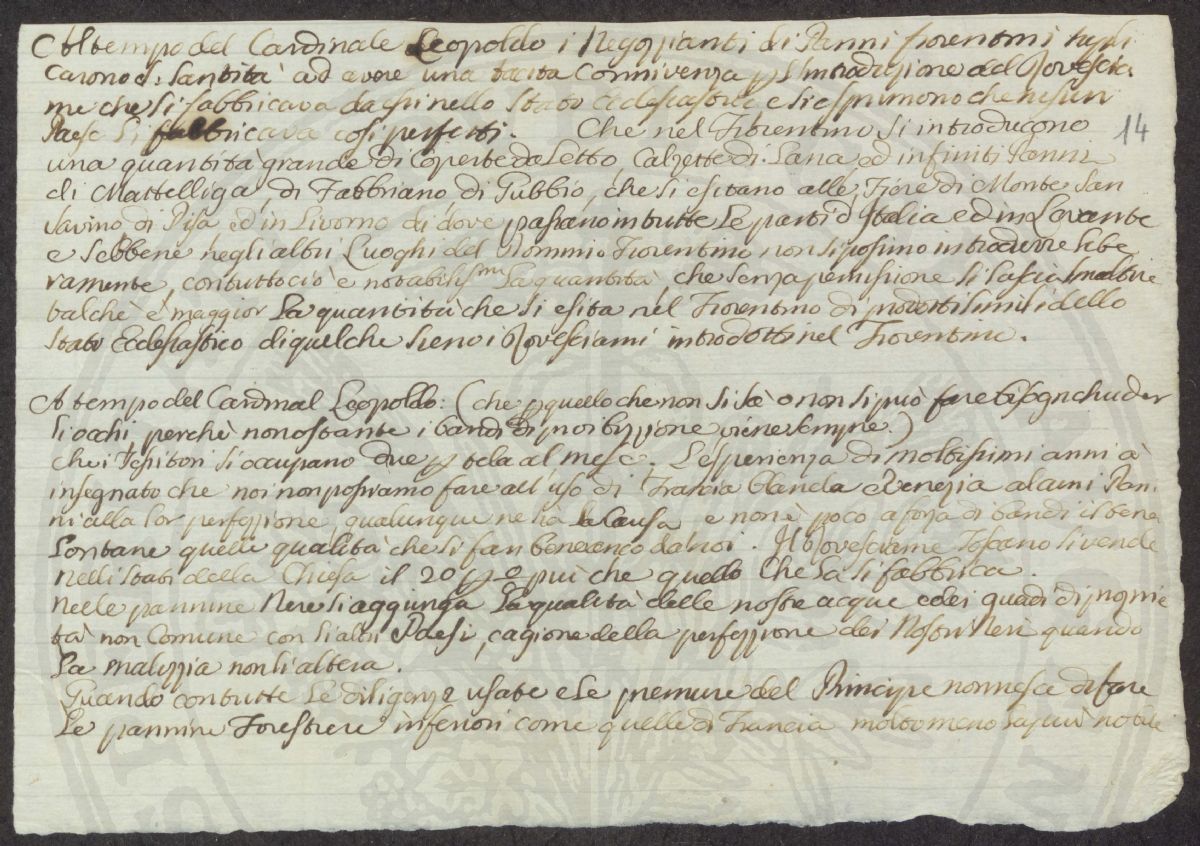 Al tempo del Cardinale Leopoldo i Negozzianti di Panni fiorentini suppli
carono S: Santità ad avere una tacita Connivenza p l'Introduzione del Rovescia
me che si fabbricava da essi nello Stato Ecclesiastico e si esprimono che nesun
Paese li fabbricava così perfetti. Che nel Fiorentino si introducono
14
una quantità grande di Coperte da Letto Calzette di Lana ed infiniti Panni
di Mattelliga, di Fabbriano di Gubbio, che si esitano alle Fiere di Monte San
Savino di Pisa ed in Livorno di dove passano in tutte le parti d'Italia ed in Levante
e sebbene negli altri Luoghi del Dominio Fiorentino non si possino introdurre libe
ramente, contuttociò è notabilissma la quantità, che senza permissione si lascia smaltire
talchè è maggior la quantità che si esita nel Fiorentino di prodotti simili dello
Stato Ecclesiastico di quel che sieno i Rovesciami introdotti nel Fiorentino.
A tempo del Cardinal Leopoldo: (che p quello che non si sà o non si può fare bisogn chiuder
li occhi, perchè nonostante i bandi di proibizzione viene sempre.)
che i Tessitori si occupano due p tela al mese. L'esperienza di moltissimi anni à
insegnato che noi non possiamo fare all'uso di Francia Olanda e Venezia alcuni Pan
ni alla lor perfezzione qualunque ne sia la Causa e non è poco a forza di bandi il tener
lontane quelle qualità che si fan bene anco da noi. Il Rovesciame Toscano si vende
nelli Stati della Chiesa il 20 p % più che quello che là si fabbrica.
nelle pannine Nere si aggiunga la qualità delle nostre acque e dei guadi di proprie
tà non Comune con li altri Paesi, cagione della perfezzione dei Nostri Neri quando
la malizzia non li altera.
Quando con tutte le diligenze usate e le premure del Principe non riesca di fare
le pannine Forestiere inferiori come quelle di Francia molto meno la più nobile